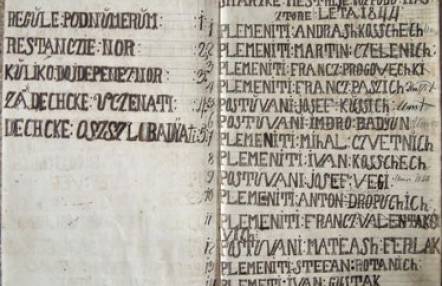 REGULE PODNUMERUM: : 1
RESTANCZIE NOR :
KULIKO DOJDE PENEZ NOR :
ZA DECHCKE UCZENATI :
DECHCKE OSZSZLUBADYATI :
ZTORE LETA 1844
PLEMENITI ANDRASH KOSSCHECH
2 PLEMENITI MARTIN CZELENICH
3 PLEMENITI FRANCZ PROGOVECHKI
4 PLEMENITI FRANCZ PASZICH
5 POSTUVANI JOSEF KUSSICH
6 POSTUVANI IMBRO BADYUN
7 PLEMENITI MIHAL CZVETNICH
8 PLEMENITI IVAN KOSSCHECH
9 POSTUVANI JOSEF VEGI
10 PLEMENITI ANTON DROPUCHICH
11 PLEMENITI FRANCZ VALENTAKO
VICH
12 POSTUVANI MATEASH FERLAK
13 PLEMENITI STEFAN ROTANICH
PLEMENITI IVAN